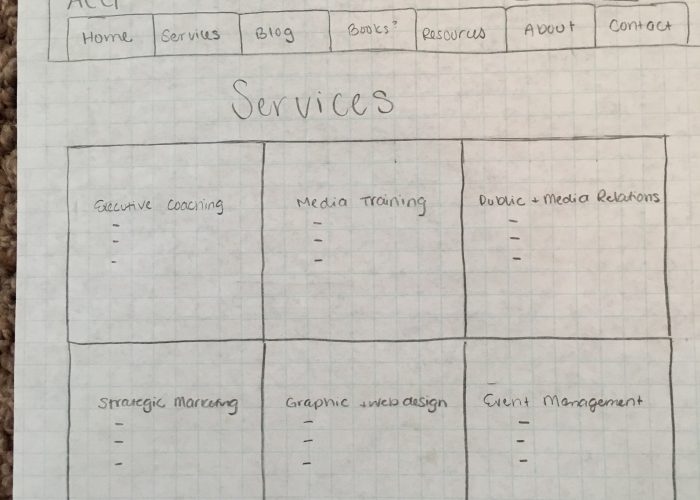 Home Services Blog Books? Resources About Contact
Services
Executive Coaching Media Training Public + Media Relations
- - -
- - -
- - -
Strategic Marketing Graphic + web design Event Management
- - -
- - -
- - -